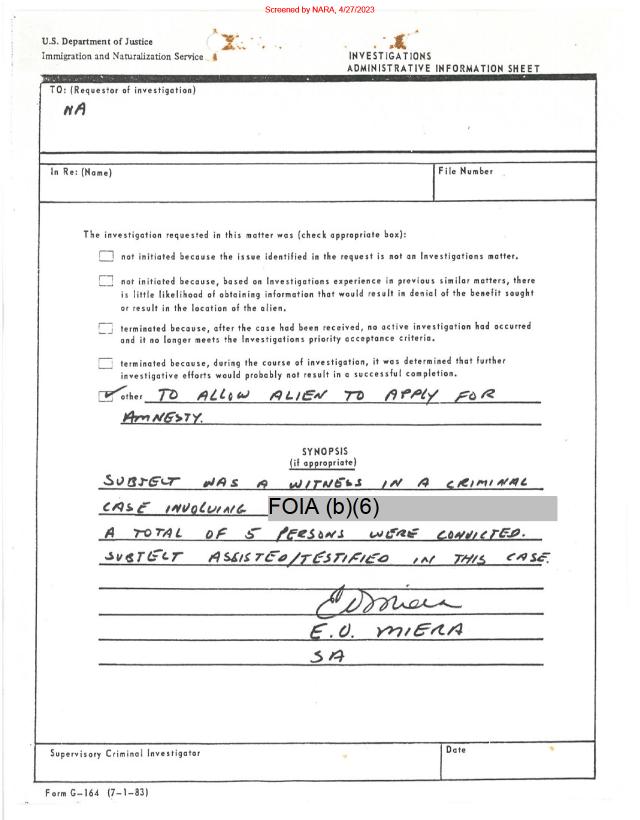 Screened by NARA, 4/27/2023
U.S. Department of Justice
Immigration and Naturalization Service
INVESTIGATIONS
ADMINISTRATIVE INFORMATION SHEET
TO: (Requestor of investigation)
NA
In Re: (Name)
File Number
The investigation requested in this matter was (check appropriate box):
not initiated because the issue identified in the request is not an Investigations matter.
not initiated because, based on Investigations experience in previous similar matters, there
is little likelihood of obtaining information that would result in denial of the benefit sought
or result in the location of the alien.
terminated because, after the case had been received, no active investigation had occurred
and it no longer meets the Investigations priority acceptance criteria.
terminated because, during the course of investigation, it was determined that further
investigative efforts would probably not result in a successful completion.
other TO ALLOW ALIEN TO APPLY FOR
AMNESTY.
SYNOPSIS
(if appropriate)
SUBJECT WAS A WITNESS IN A CRIMINAL
CASE INVOLVING FOIA (b)(6)
A TOTAL OF 5 PERSONS WERE CONVICTED.
SUBJECT ASSISTED/TESTIFIED IN THIS CASE.
E.O. MIERA
SA
Supervisory Criminal Investigator
Date
Form G-164 (7-1-83)